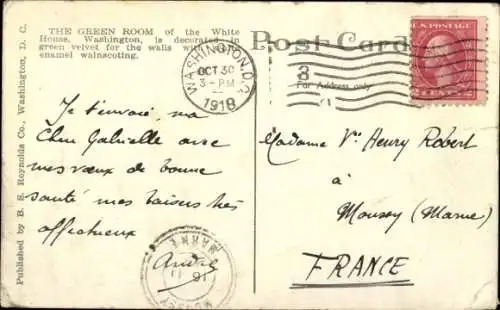 THE GREEN ROOM of the White
House, Washington, is decorated in
green velvet for the walls with
enamel wainscoting.
Published by B. S. Reynolds Co., Washington, D. C.
Post Card
For Address only
WASHINGTON, D.C.
OCT 30
3-PM
1918
3
U.S. POSTAGE
Je t'envoie, ma
Chère Gabrielle avec
mes vœux de bonne
santé mes baisers très
affectueux
André
MARNE
Madame Ve Henry Robert
à
Moussy (Marne)
FRANCE